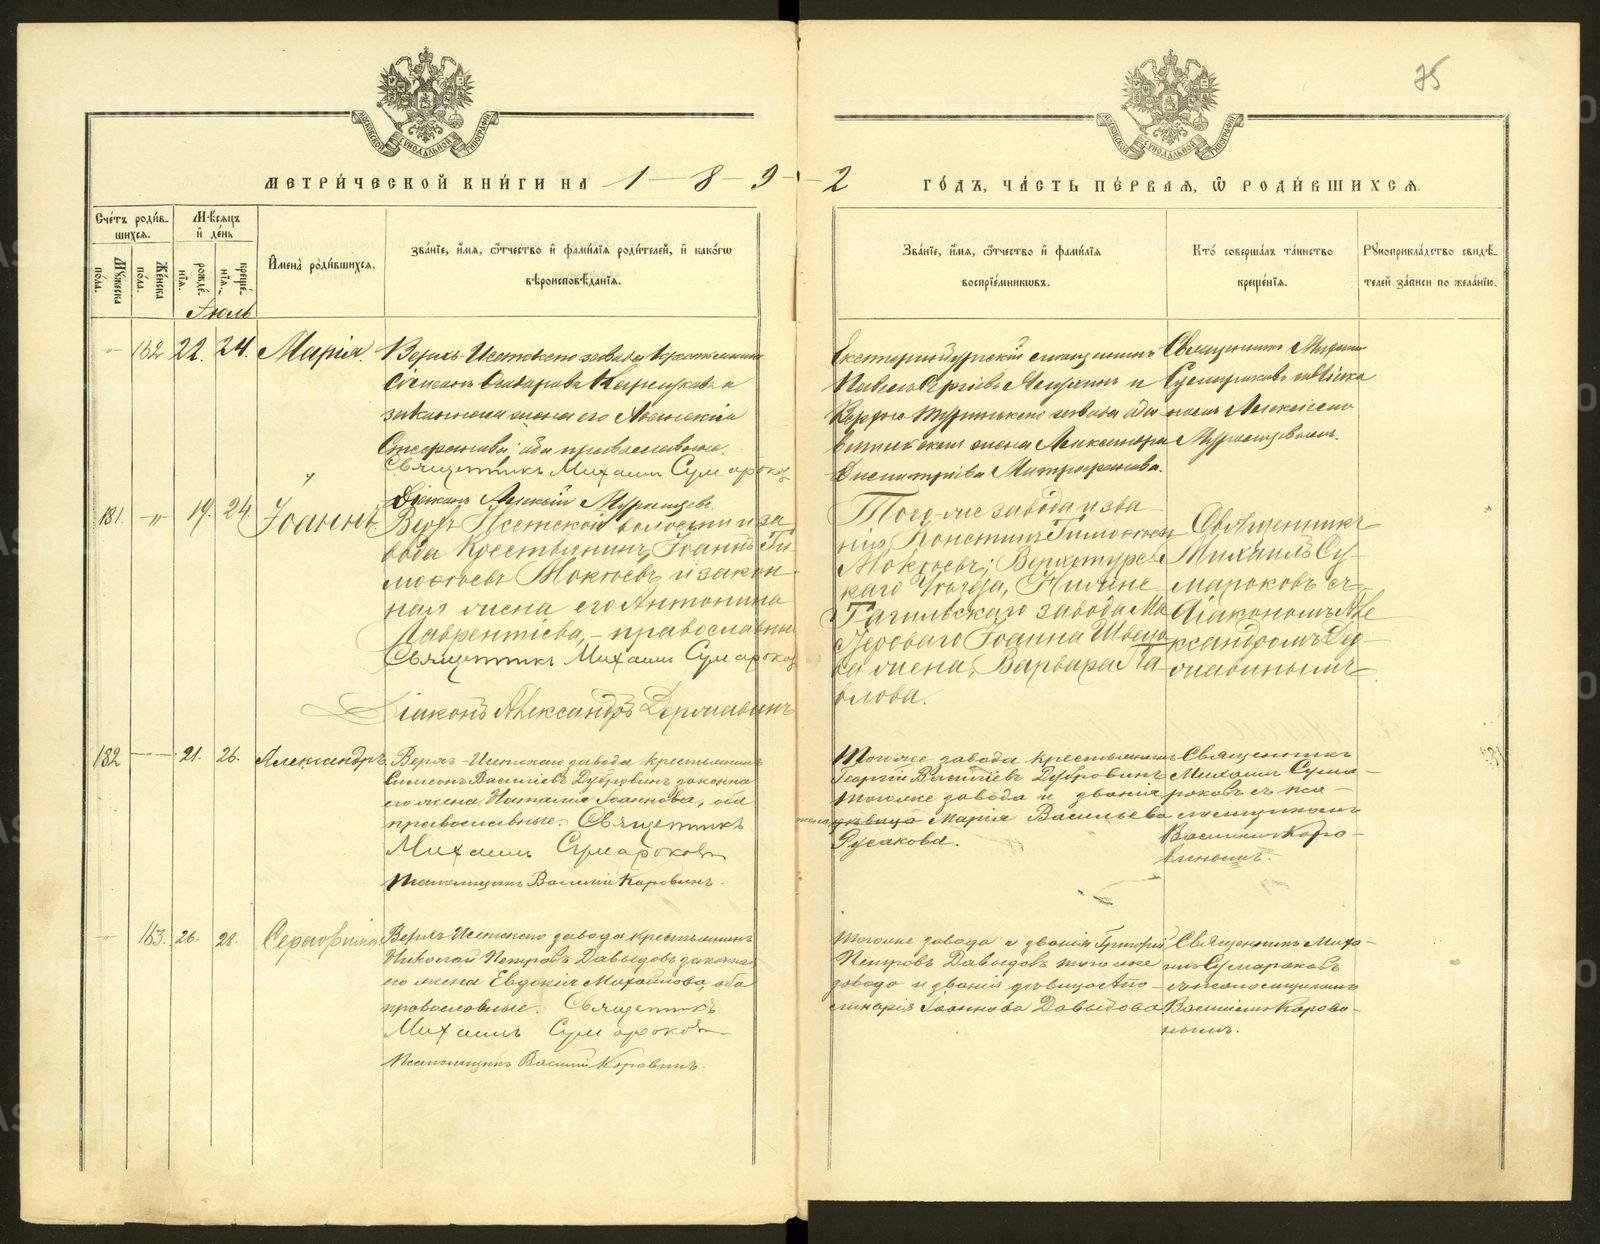 75
МОСКОВСКОЙ СѴНОДАЛЬНОЙ ТИПОГРАФІИ
МОСКОВСКОЙ СѴНОДАЛЬНОЙ ТИПОГРАФІИ
МЕТРИ́ЧЕСКОЙ КНИ́ГИ НА 1-8-9-2 ГО́ДЪ, ЧА́СТЬ ПЕ́РВАЯ, Ѿ РОДИ́ВШИХСЯ.
Сче́тъ роди́в-
шихся.
Мꙋжеска пола.
Же́нска пола.
Мѣсяцъ
и҆ де́нь
рожде́-
нїя.
креще́-
нїя.
И҆мена̀ роди́вшихся.
Зва́нїе, и҆́мя, ѻ҆́тчество и҆ фами́лїя роди́телей, и҆ како́гѡ
вѣроисповѣ́данїя.
Зва́нїе, и҆́мя, ѻ҆́тчество и҆ фами́лїя
воспрїе́мникѡвъ.
Кто̀ соверша́лъ та́инство
креще́нїя.
Рꙋкоприкла́дство свидѣ́-
телей за́писи по жела́нїю.
Іюль
162 22. 24. Марія.
Верхъ Исетскаго завода
Симеонъ
законная жена его
оба православные.
Священникъ Михаилъ Сумароковъ
Діаконъ Алексій
Екатеринбургскій мещанинъ
Павелъ Сергіевъ и
завода
жена Александра
Димитріева Митрофанова.
Священникъ Михаилъ
Сумароковъ
Алексіемъ
181. -"- 19. 24. Іоаннъ
Верхъ Исетской волости и за
вода Крестьянинъ, Іоаннъ Ти-
мофеевъ Мокѣевъ и закон-
ная жена его Антонина
Лаврентіева, - православные
Священникъ Михаилъ Сумароковъ
Діаконъ Александръ Державинъ
Того-же завода и зва
нія Констин Тимофеев
Мокѣевъ; Верхотурс-
каго Уѣзда, Нижне
Тагильскаго завода Ма
стероваго Іоанна Швецо
ва жена, Варвара Па-
влова.
Священникъ
Михаилъ Су-
мароковъ съ
Діакономъ Але
ксандромъ Дер-
жавинымъ
182 -"- 21. 26. Александръ
Верхъ-Исетскаго завода крестьянинъ
Симеонъ Василіевъ Дубровинъ законна
его жена Наталія Іоаннова, оба
православные. Священникъ
Михаилъ Сумароковъ
Псаломщикъ Василій Коровинъ.
Тогоже завода крестьянинъ
Георгій Василіевъ Дубровинъ
тогоже завода и званія
дѣвица Марія Васильева
Русакова.
Священникъ
Михаилъ Сума-
роковъ съ пса-
ломщикомъ
Василіемъ Коро-
винымъ.
163. 26. 28. Серафима
Верхъ Исетскаго завода крестьянинъ
Николай Петровъ Давыдовъ законная
его жена Евдокія Михайлова, оба
православные. Священникъ
Михаилъ Сумароковъ
Псаломщикъ Василій Коровинъ.
тогоже завода и званія Григорій
Петровъ Давыдовъ тогоже
завода и званія дѣвица Апо-
линарія Іоаннова Давыдова
Священникъ Миха-
илъ Сумароковъ
съ псаломщикомъ
Василіемъ Корови-
нымъ.
METRIKI.GASO-URAL.RU